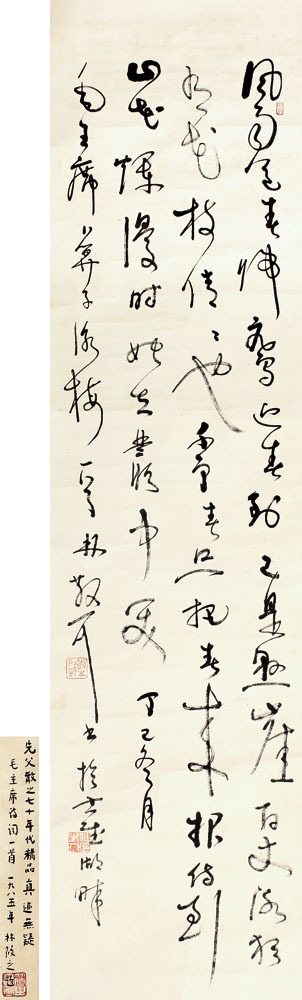 風雨送春歸飛雪迎春到已是懸崖百丈冰猶
有花枝俏〻也不爭春只把春來報待到
山花爛漫時她在叢中笑 丁巳冬月
毛主席卜算子詠梅一首林散耳書於玄武湖畔
先父散之七十年代精品真迹無疑
毛主席詩詞一首 一九八五年 林筱之